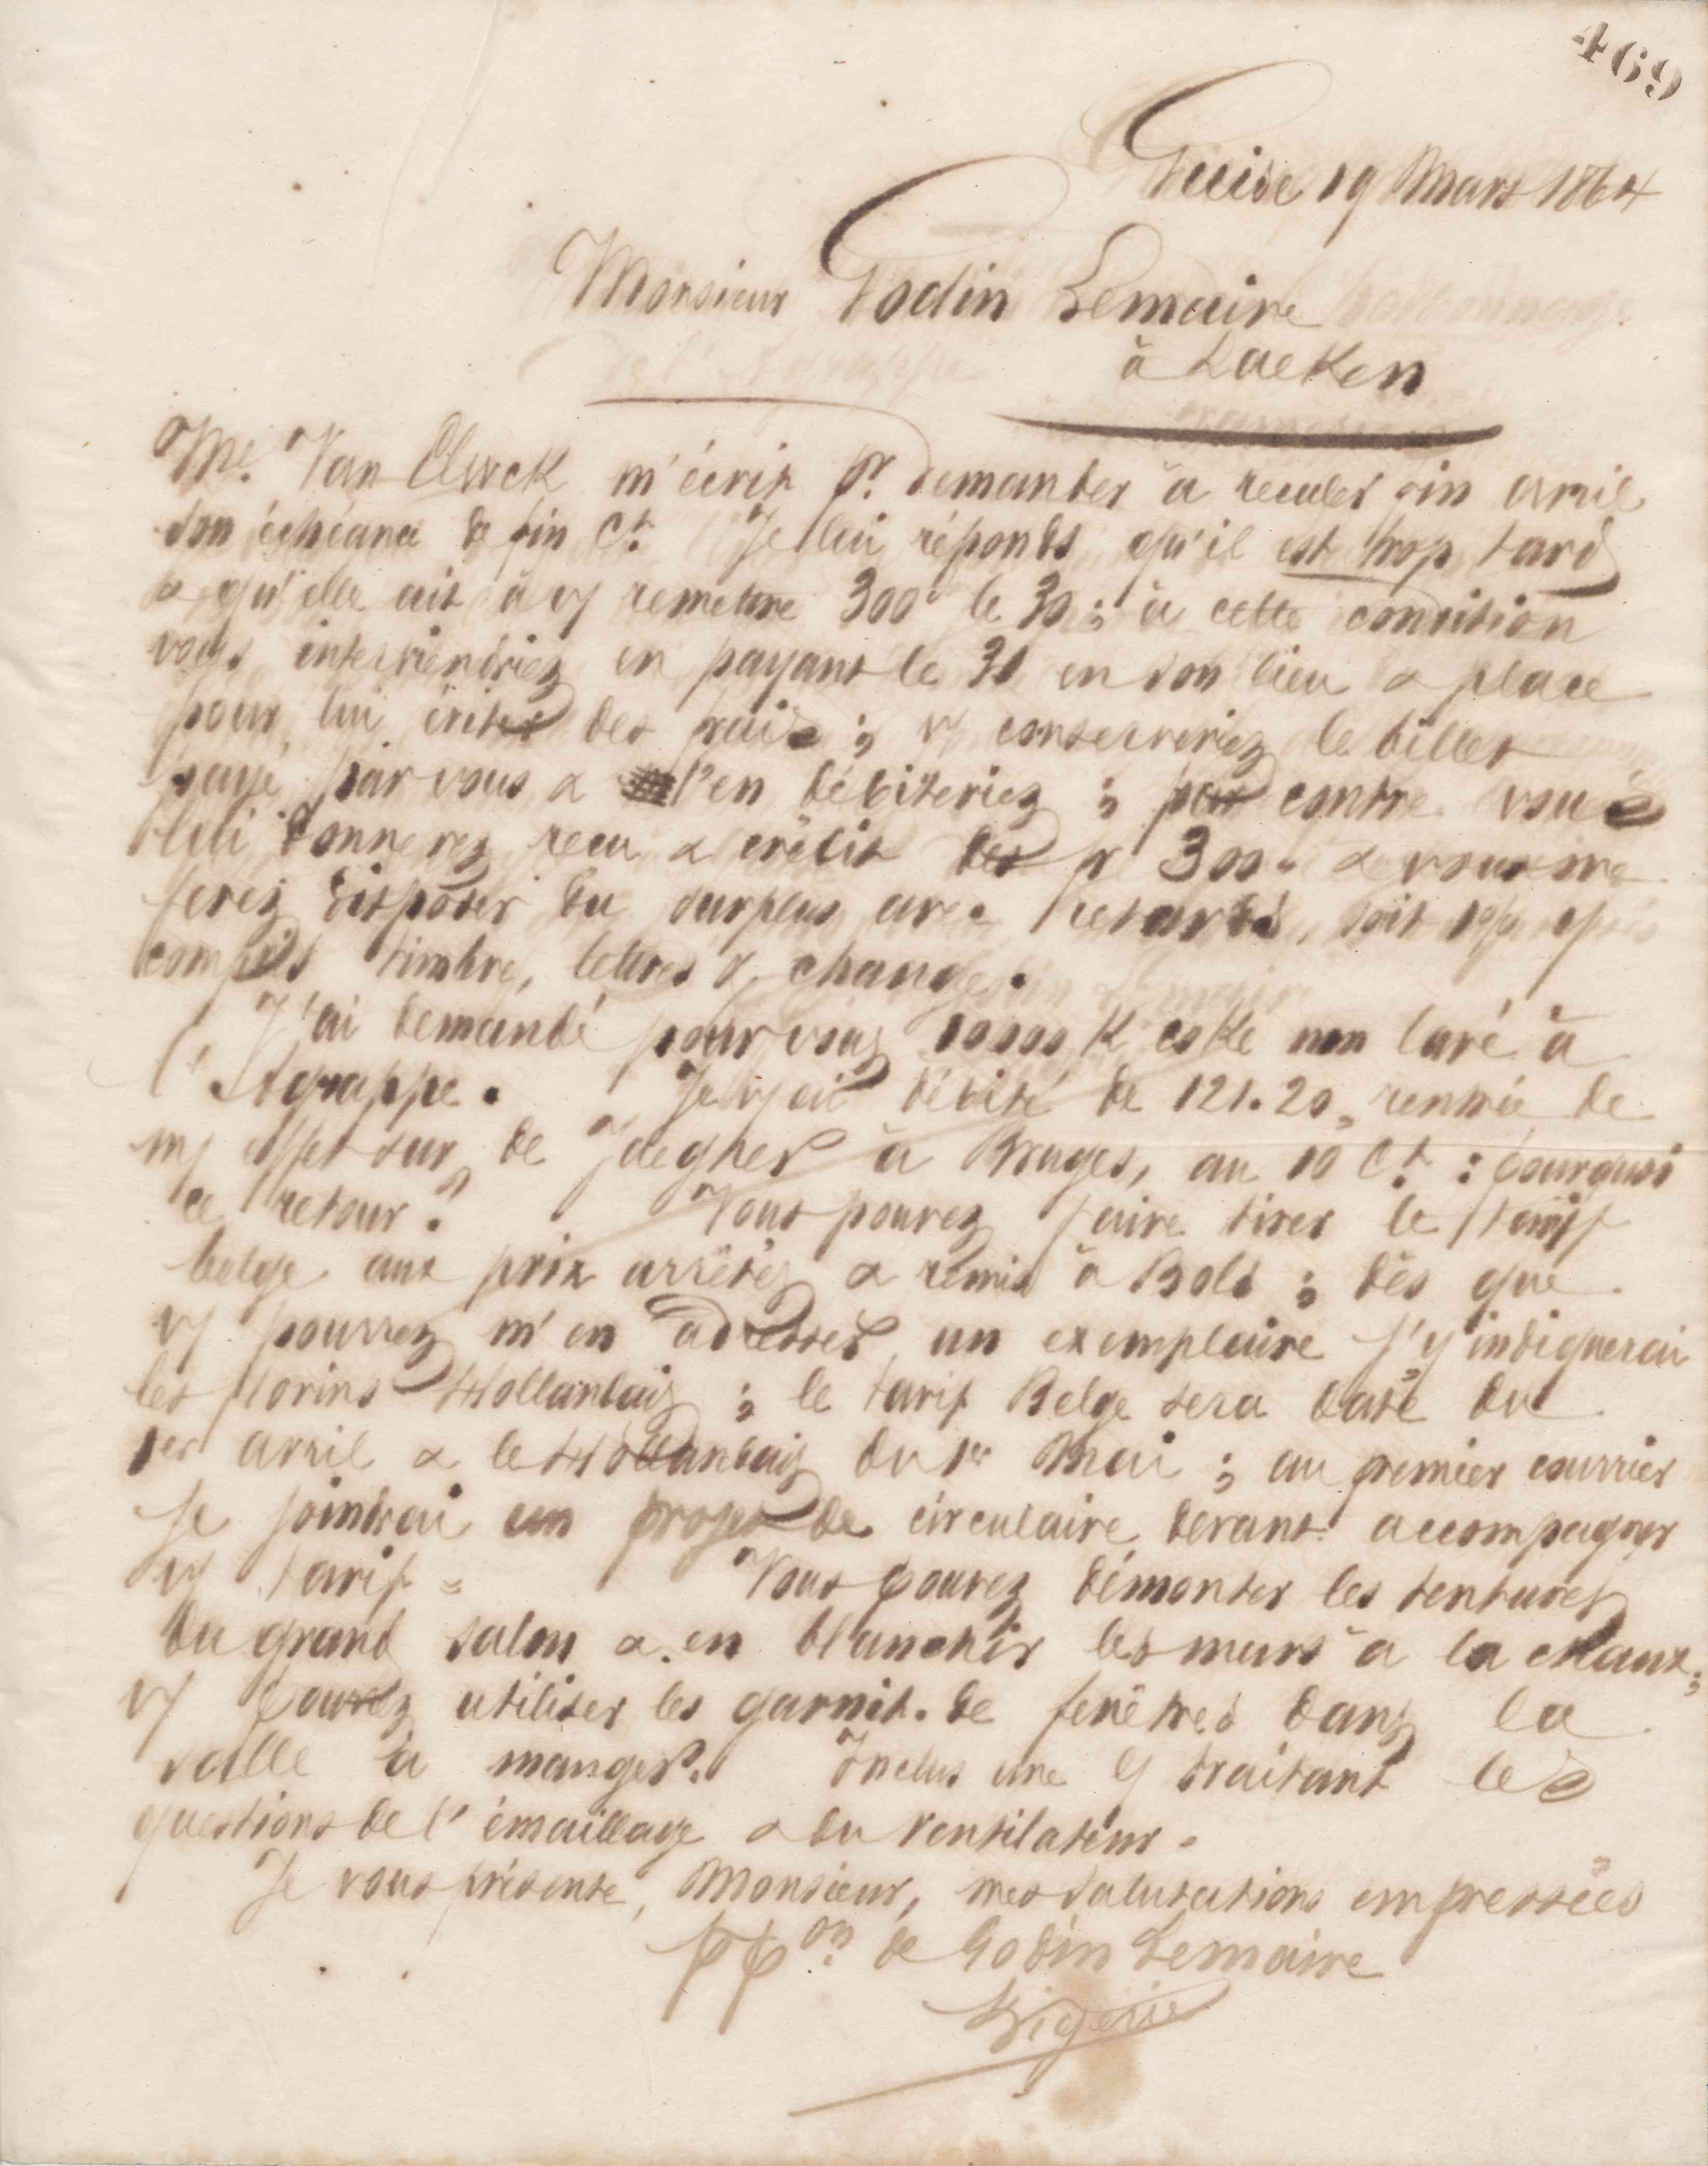 469
Guise 19 Mars 1864
Monsieur Godin Lemaire
à Laeken
Me. Van m'écrit pr. demander à reculer fin avril
son échéance de fin Ct. Je lui réponds qu'il est trop tard
& qu'elle ait à vs remettre 300 le 30 ; à cette condition
vous interviendriez en payant le 31 en son lieu & place
pour lui éviter des frais ; vs conserveriez le billet
payé par vous & l'en débiteriez ; par contre vous
lui donnerez reçu & crédit des fr 300 - & vous me
ferez disposer du surplus avec retards, soit
compris timbre, lettres & change.
J'ai demandé pour vous 10000 K coke non lavé à
l'Agrappe. Je vs ai débité de 121.20, rentrée de
ms effet sur de Jaegher à Bruges, au 10 Ct. : pourquoi
ce retour ? Vous pouvez faire tirer le tarif
belge aux prix arrêtés & remis à Bols ; dès que
vs pourrez m'en adresser un exemplaire j'y indiquerai
les florins Hollandais ; le tarif Belge sera daté du
1er avril & le Hollandais du 1er Mai ; au premier courrier
je joindrai un projet de circulaire devant accompagner
vs tarif = Vous pouvez démonter les tentures
du grand salon & en blanchir les murs à la chaux ;
vs pouvez utiliser les garnit. de fenêtres dans la
salle à manger. Inclus une traitant les
questions de l'émaillage & du ventilateur.
Je vous présente, Monsieur, mes salutations empressées
ppon. de Godin Lemaire